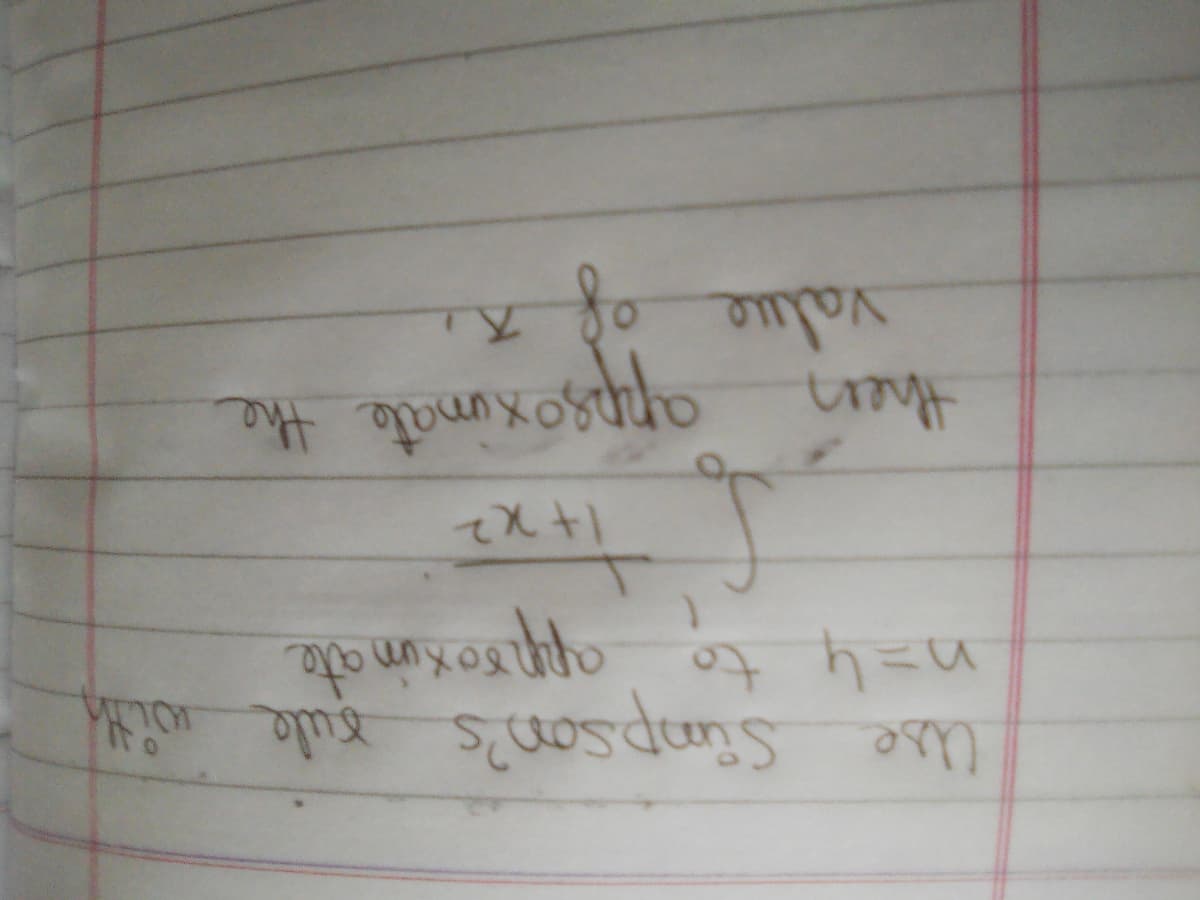 Use Simpson's rule with
n=4 to approximate
∫₀¹ 1/(1+x²)
then approximate the
value of π.